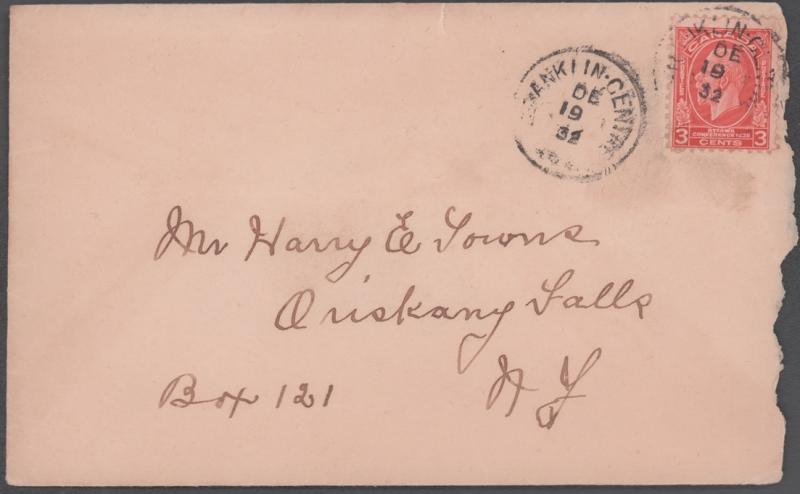 FRANKLIN-CENTRE
DE
19
32
FRANKLIN-C
DE
19
32
CANADA
3 3
OTTAWA
CONFERENCE 1932
CENTS
Mr Harry E Towns
Oriskany Falls
Box 121 N Y